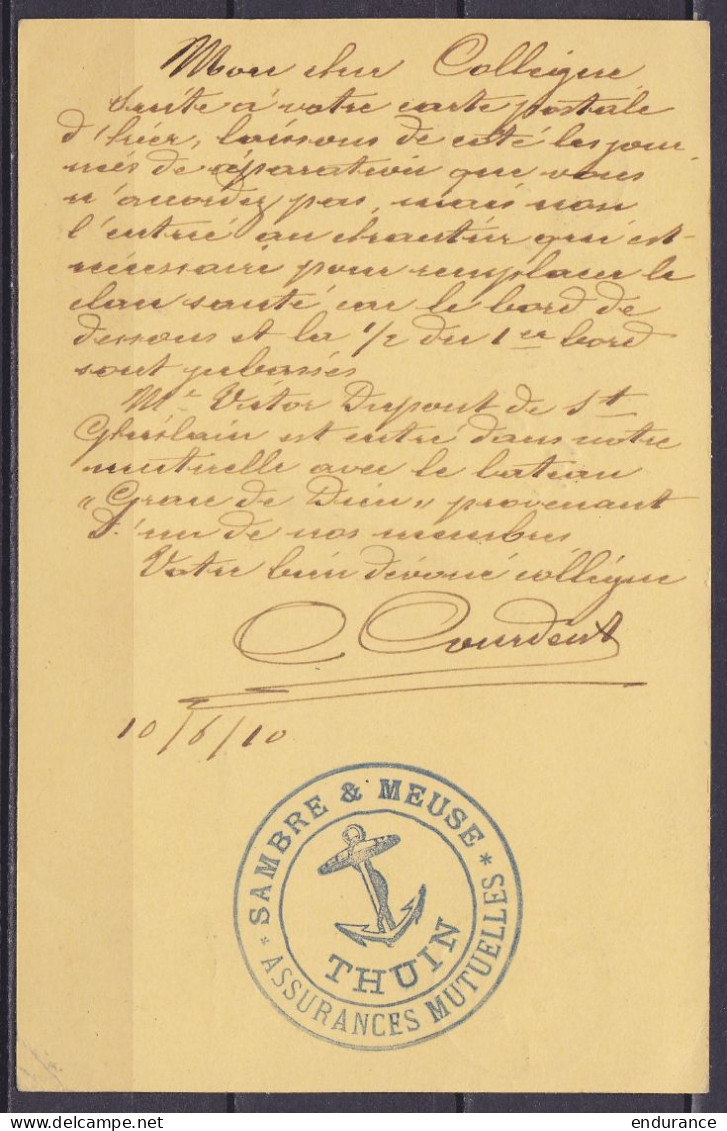 Mon cher Collègue
Suite à votre carte postale
d'hier, laissons de coté les jour
nés de réparation que vous
n'accordez pas, mais non
l'entrée au chantier qui est
nécessaire pour remplacer le
clan sauté car le bord de
dessous et la 1/2 du 1er bord
sont
Mr Victor Dupont de St
Ghislain est entré dans notre
mutuelle avec le bateau
"Grace de Dieu" provenant
d'un de nos membres
Votre bien dévoué collègue
C Courdent
10/6/10
* SAMBRE & MEUSE *
THUIN
ASSURANCES MUTUELLES
endurance